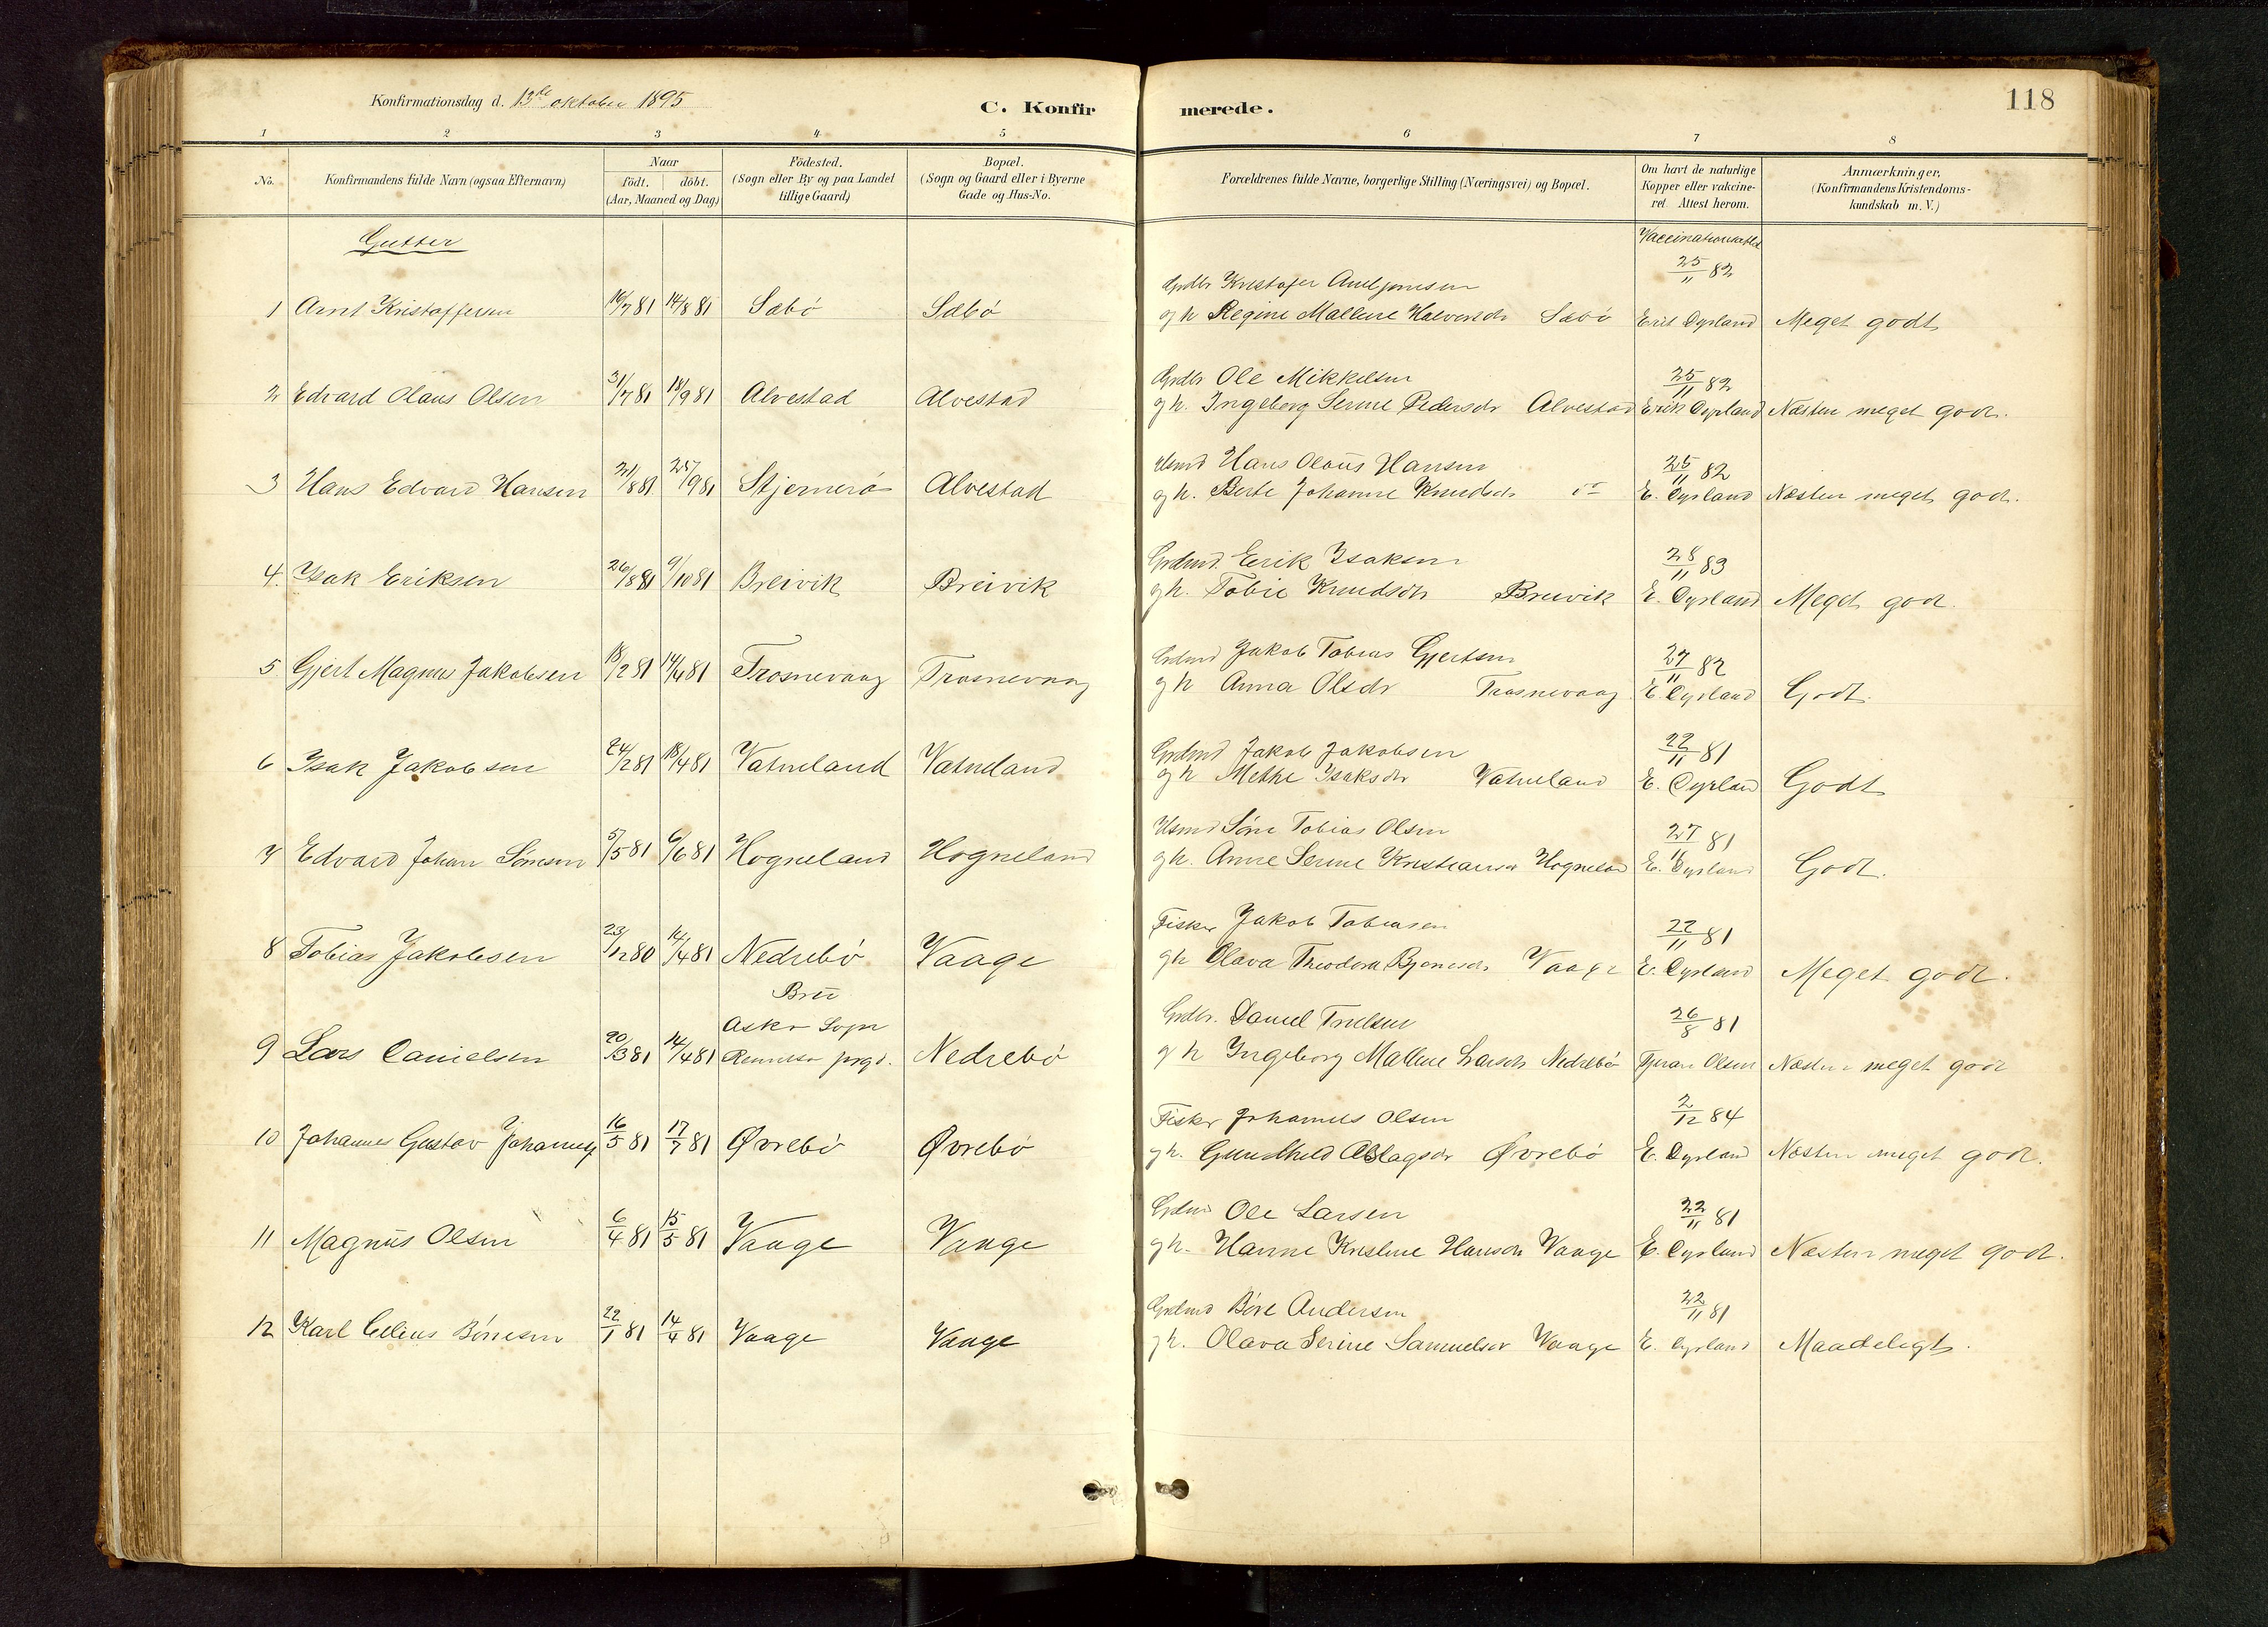 Konfirmationsdag d. 13de oktober 1895
C. Konfirmerede.
118
1 2 3 4 5 6 7 8
No.
Konfirmandens fulde Navn (ogsaa Efternavn)
Naar
födt. döbt.
(Aar, Maaned og Dag)
Födested.
(Sogn eller By og paa Landet
tillige Gaard)
Bopæl.
(Sogn og Gaard eller i Byerne
Gade og Hus-No.
Forældrenes fulde Navne, borgerlige Stilling (Næringsvei) og Bopæl.
Om havt de naturlige
Kopper eller vakcine-
ret. Attest herom.
Anmærkninger,
(Konfirmandens Kristendoms-
kundskab m. V.)
Gutter
25/11 82
Kristofer
1 Arnt Kristoffersen 16/7 81 14/8 81 Sæbö Sæbö
g h Regine Mallene Halvorsdr Sæbö Erik Dyrland Meget godt
Grdbr Ole Mikkelsen 25/11 82
2 Edvard Olaus Olsen 31/7 81 18/9 81 Alvestad Alvestad
g h. Ingeborg Serine Pedersdr Alvestad Erik Dyrland Næsten meget godt.
Husmd Hans Olaus Hansen 25/11 82
3 Hans Edvard Hansen 21/8 81 25/9 81 Stjernerö Alvestad
g h. Berte Johanne Knudsdr do E. Dyrland Næsten meget godt.
Grdmd. Erik Isaksen 28/11 83
4. Isak Eriksen 26/8 81 9/10 81 Breivik Breivik
g h. Tobie Knudsdr Breivik E. Dyrland Meget godt.
Grdmd Jakob Tobias Gjertsen 27/11 82
5. Gjert Magnus Jakobsen 18/2 81 14/4 81 Trosnevaag Trosnevaag
g h Anna Olsdr Trosnevaag E. Dyrland Godt.
Grdmd Jakob Jakobsen 22/11 81
6 Isak Jakobsen 24/2 81 18/4 81 Vatneland Vatneland
g h Methe Isaksdr Vatneland E. Dyrland Godt
Husmd Söne Tobias Olsen 27/11 81
7 Edvard Johan Sönesen 5/5 81 6/6 81 Hogneland Hogneland
g h. Anne Serine Kristiansdr Hogneland E. Dyrland Godt.
Fisker Jakob Tobiasen 22/11 81
8 Tobias Jakobsen 23/12 80 14/4 81 Nedrebö Vaage
g h Olava Theodora Vaage E. Dyrland Meget godt.
Bru
Askø Sogn
Grdbr. Daniel Truelsen 26/8 81
9 Lars Danielsen 20/3 81 14/4 81 Rennesø prgd. Nedrebö
g h Ingeborg Mallene Larsdr Nedrebö Olsen Næsten meget godt
Fisker Johannes Olsen 2/12 84
10 Johannes Gustav Johannes 16/5 81 17/7 81 Øvrebö Øvrebö
g h. Gunhild Aslagsdr Øvrebö E. Dyrland Næsten meget godt.
Grdmd Ole Larsen 22/11 81
11 Magnus Olsen 6/4 81 15/5 81 Vaage Vaage
g h. Hanne Kristine Hansdr Vaage E. Dyrland Næsten meget godt.
Grdmd Böre Andersen 22/11 81
12 Karl Celius Böresen 22/1 81 14/4 81 Vaage Vaage
g h. Olava Serine Samuelsdr Vaage E. Dyrland Maadeligt.